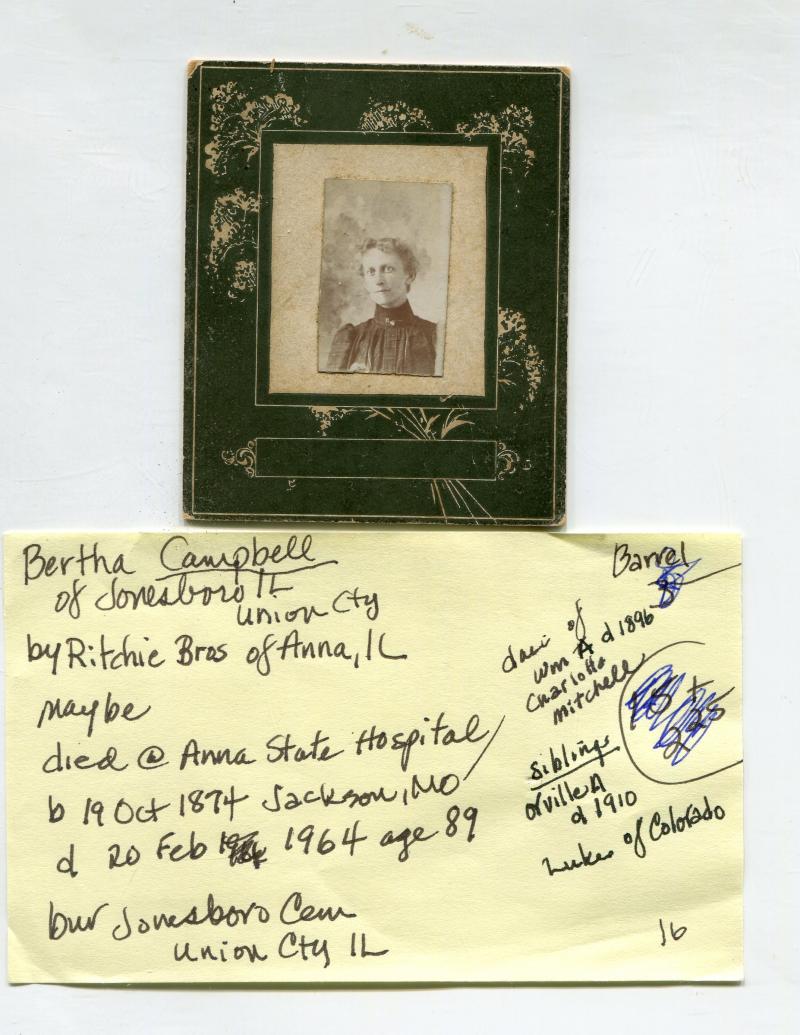 Bertha Campbell
of Jonesboro IL
Union Cty
by Ritchie Bros of Anna, IL
Maybe
died @ Anna State Hospital
b 19 Oct 1874 Jackson, MO
d 20 Feb 1964 age 89
bur Jonesboro Cem
Union Cty IL
Barrel
dau of
Wm A d 1896
Charlotte
Mitchell
Siblings
Orville A
d 1910
Luke of Colorado
16